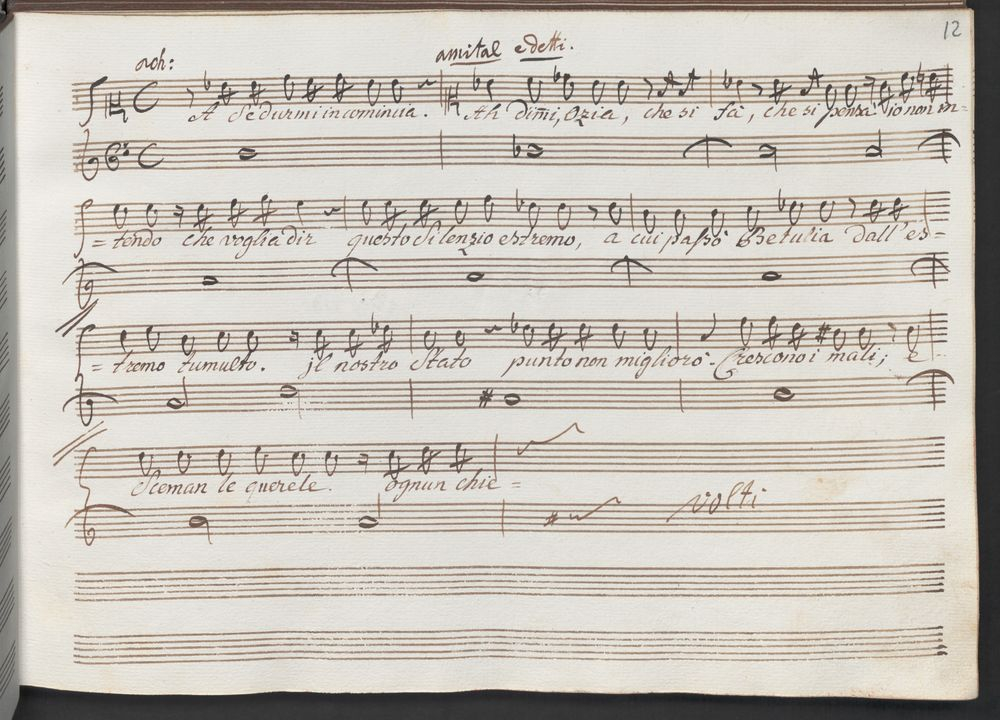 12
ach: amital e detti.
A Sedurmi incomincia. Ah dimi, Ozia, che si fà, che si pensa io non in=
=tendo che voglia dir questo Silenzio estremo, a cui passò Betulia dall'es=
=tremo tumulto. jl nostro Stato punto non migliorò. Crescono i mali; e
Sceman le querele. ognun chie=
volti